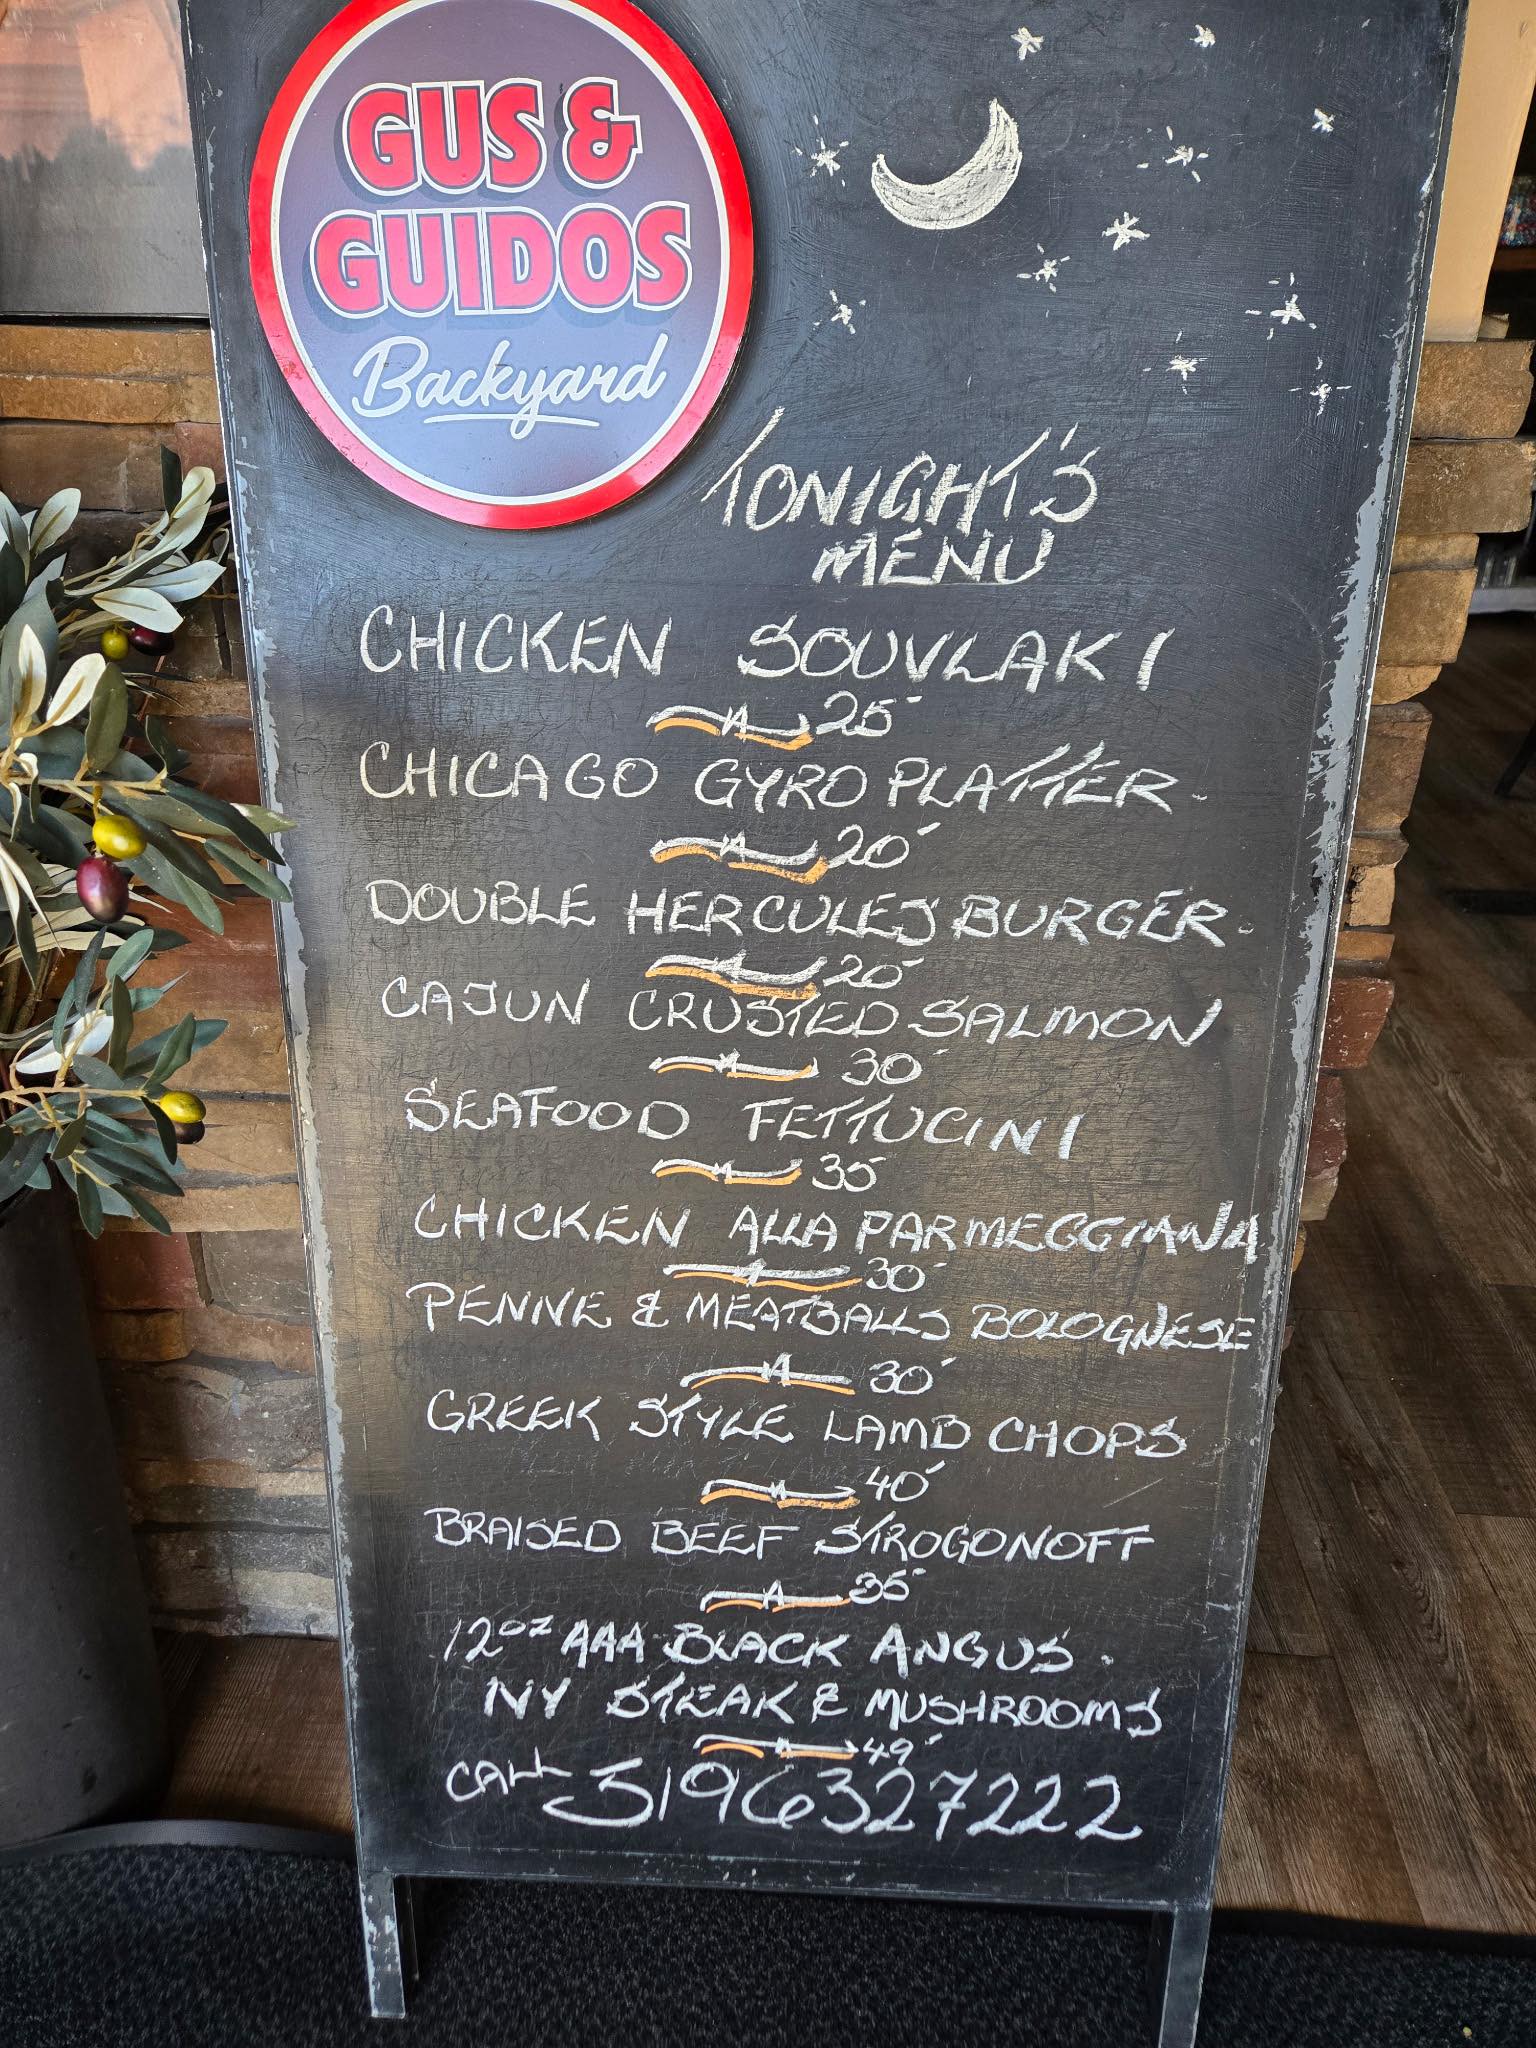 GUS &
GUIDOS
Backyard
TONIGHT'S
MENU
CHICKEN SOUVLAKI
25
CHICAGO GYRO PLATTER
20
DOUBLE HERCULES BURGER
20
CAJUN CRUSTED SALMON
30
SEAFOOD FETTUCINI
35
CHICKEN ALLA PARMEGGIANA
30
PENNE & MEATBALLS BOLOGNESE
30
GREEK STYLE LAMB CHOPS
40
BRAISED BEEF STROGONOFF
35
12oz AAA BLACK ANGUS
NY STEAK & MUSHROOMS
49
CALL 5196327222